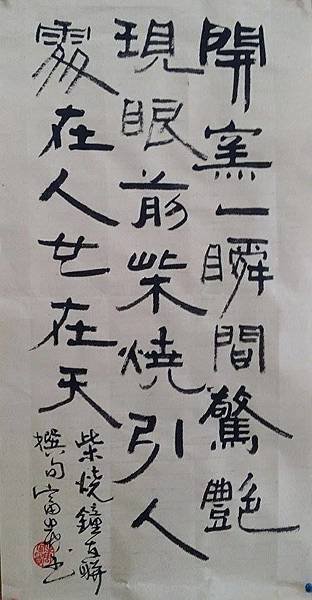 開窯一瞬間驚艷
現眼前柴燒引人
處在人也在天
柴燒鐘友聯
撰句富